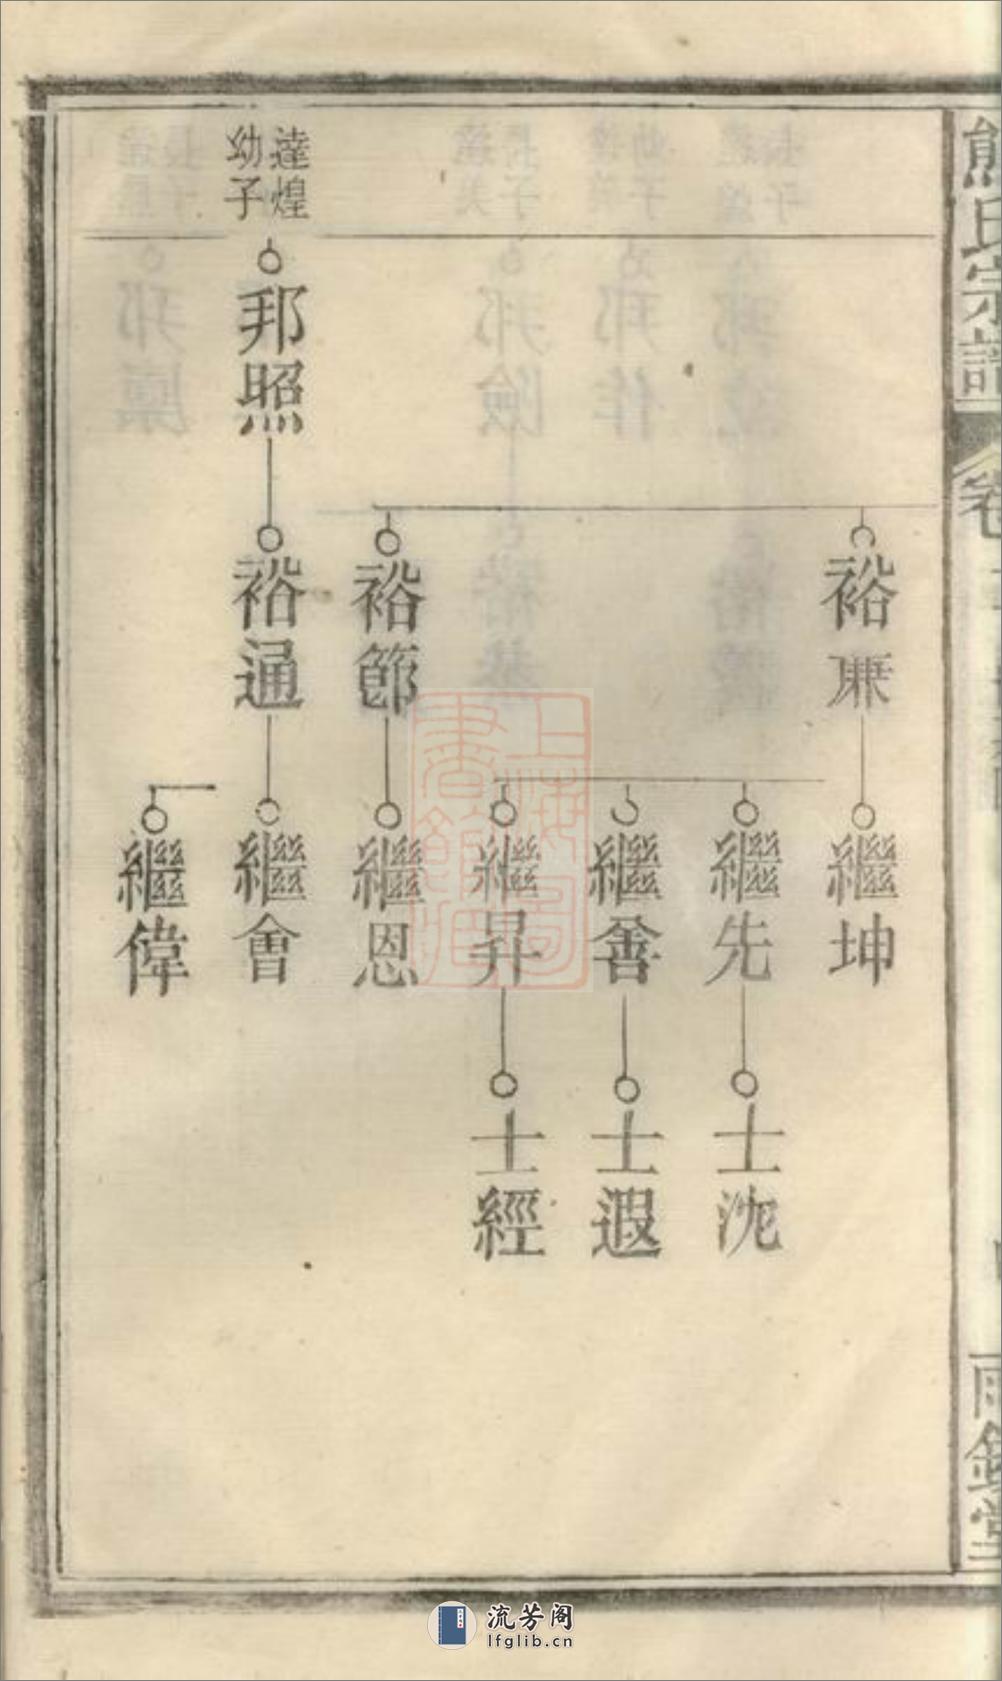 熊氏宗譜
卷
裕廉
繼坤
繼先
士沇
繼善
士遐
繼昇
士經
裕節
繼恩
達煌
幼子
邦照
裕通
繼會
繼偉
上海圖書館藏
流芳阁
lfglib.cn